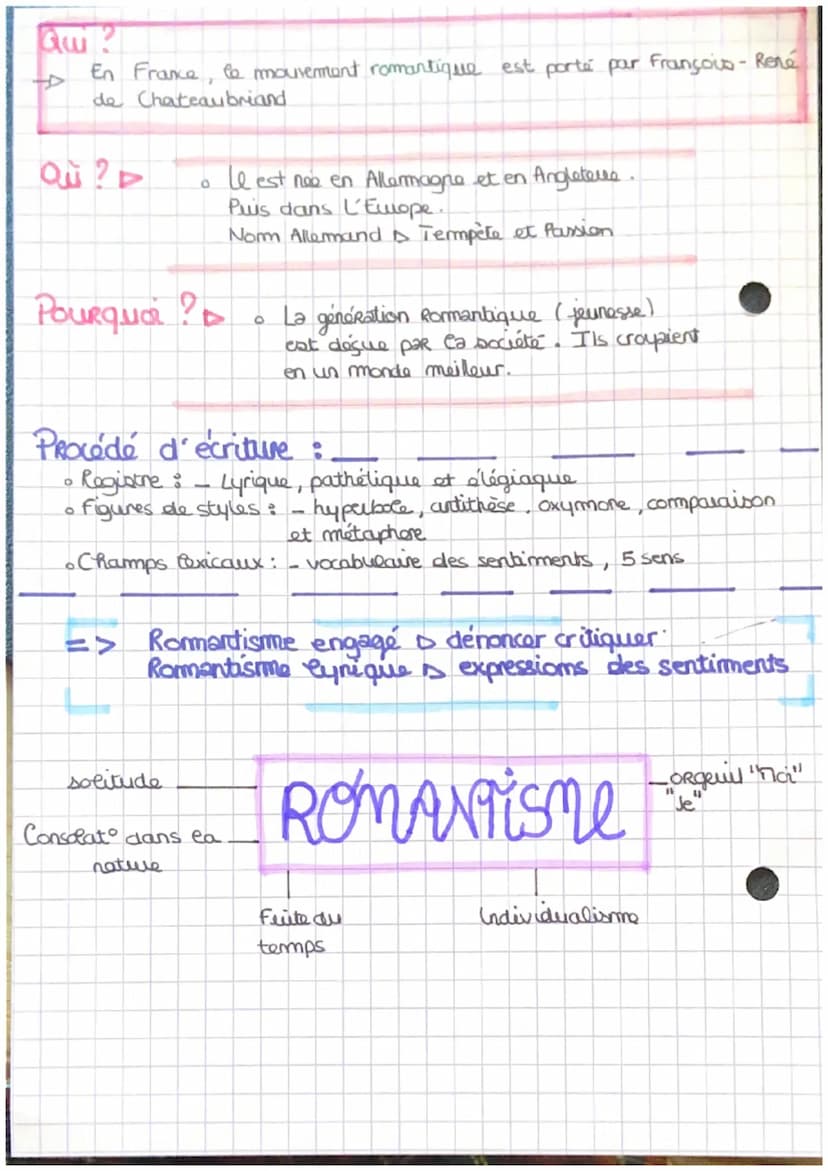 Qui ?
→ En France, le mouvement romantique est porté par François-René
de Chateaubriand
Où ? ▷ o Il est née en Allemagne et en Angleterre.
Puis dans L'Europe.
Nom Allemand ▷ Tempête et Passion
Pourquoi ? ▷ o La génération Romantique (jeunesse)
est déçue par la société. Ils croyaient
en un monde meilleur.
Procédé d'écriture :
o Registre : - Lyrique, pathétique et élégiaque
o Figures de styles : - hyperbole, antithèse, oxymore, comparaison
et métaphore
o Champs lexicaux : - vocabulaire des sentiments, 5 sens
=> Romantisme engagé ▷ dénoncer critiquer
Romantisme lyrique ▷ expressions des sentiments
solitude
ROMANTISME
orgeuil "Moi"
"Je"
Consolat° dans la
nature
Fuite du
temps
Individualisme